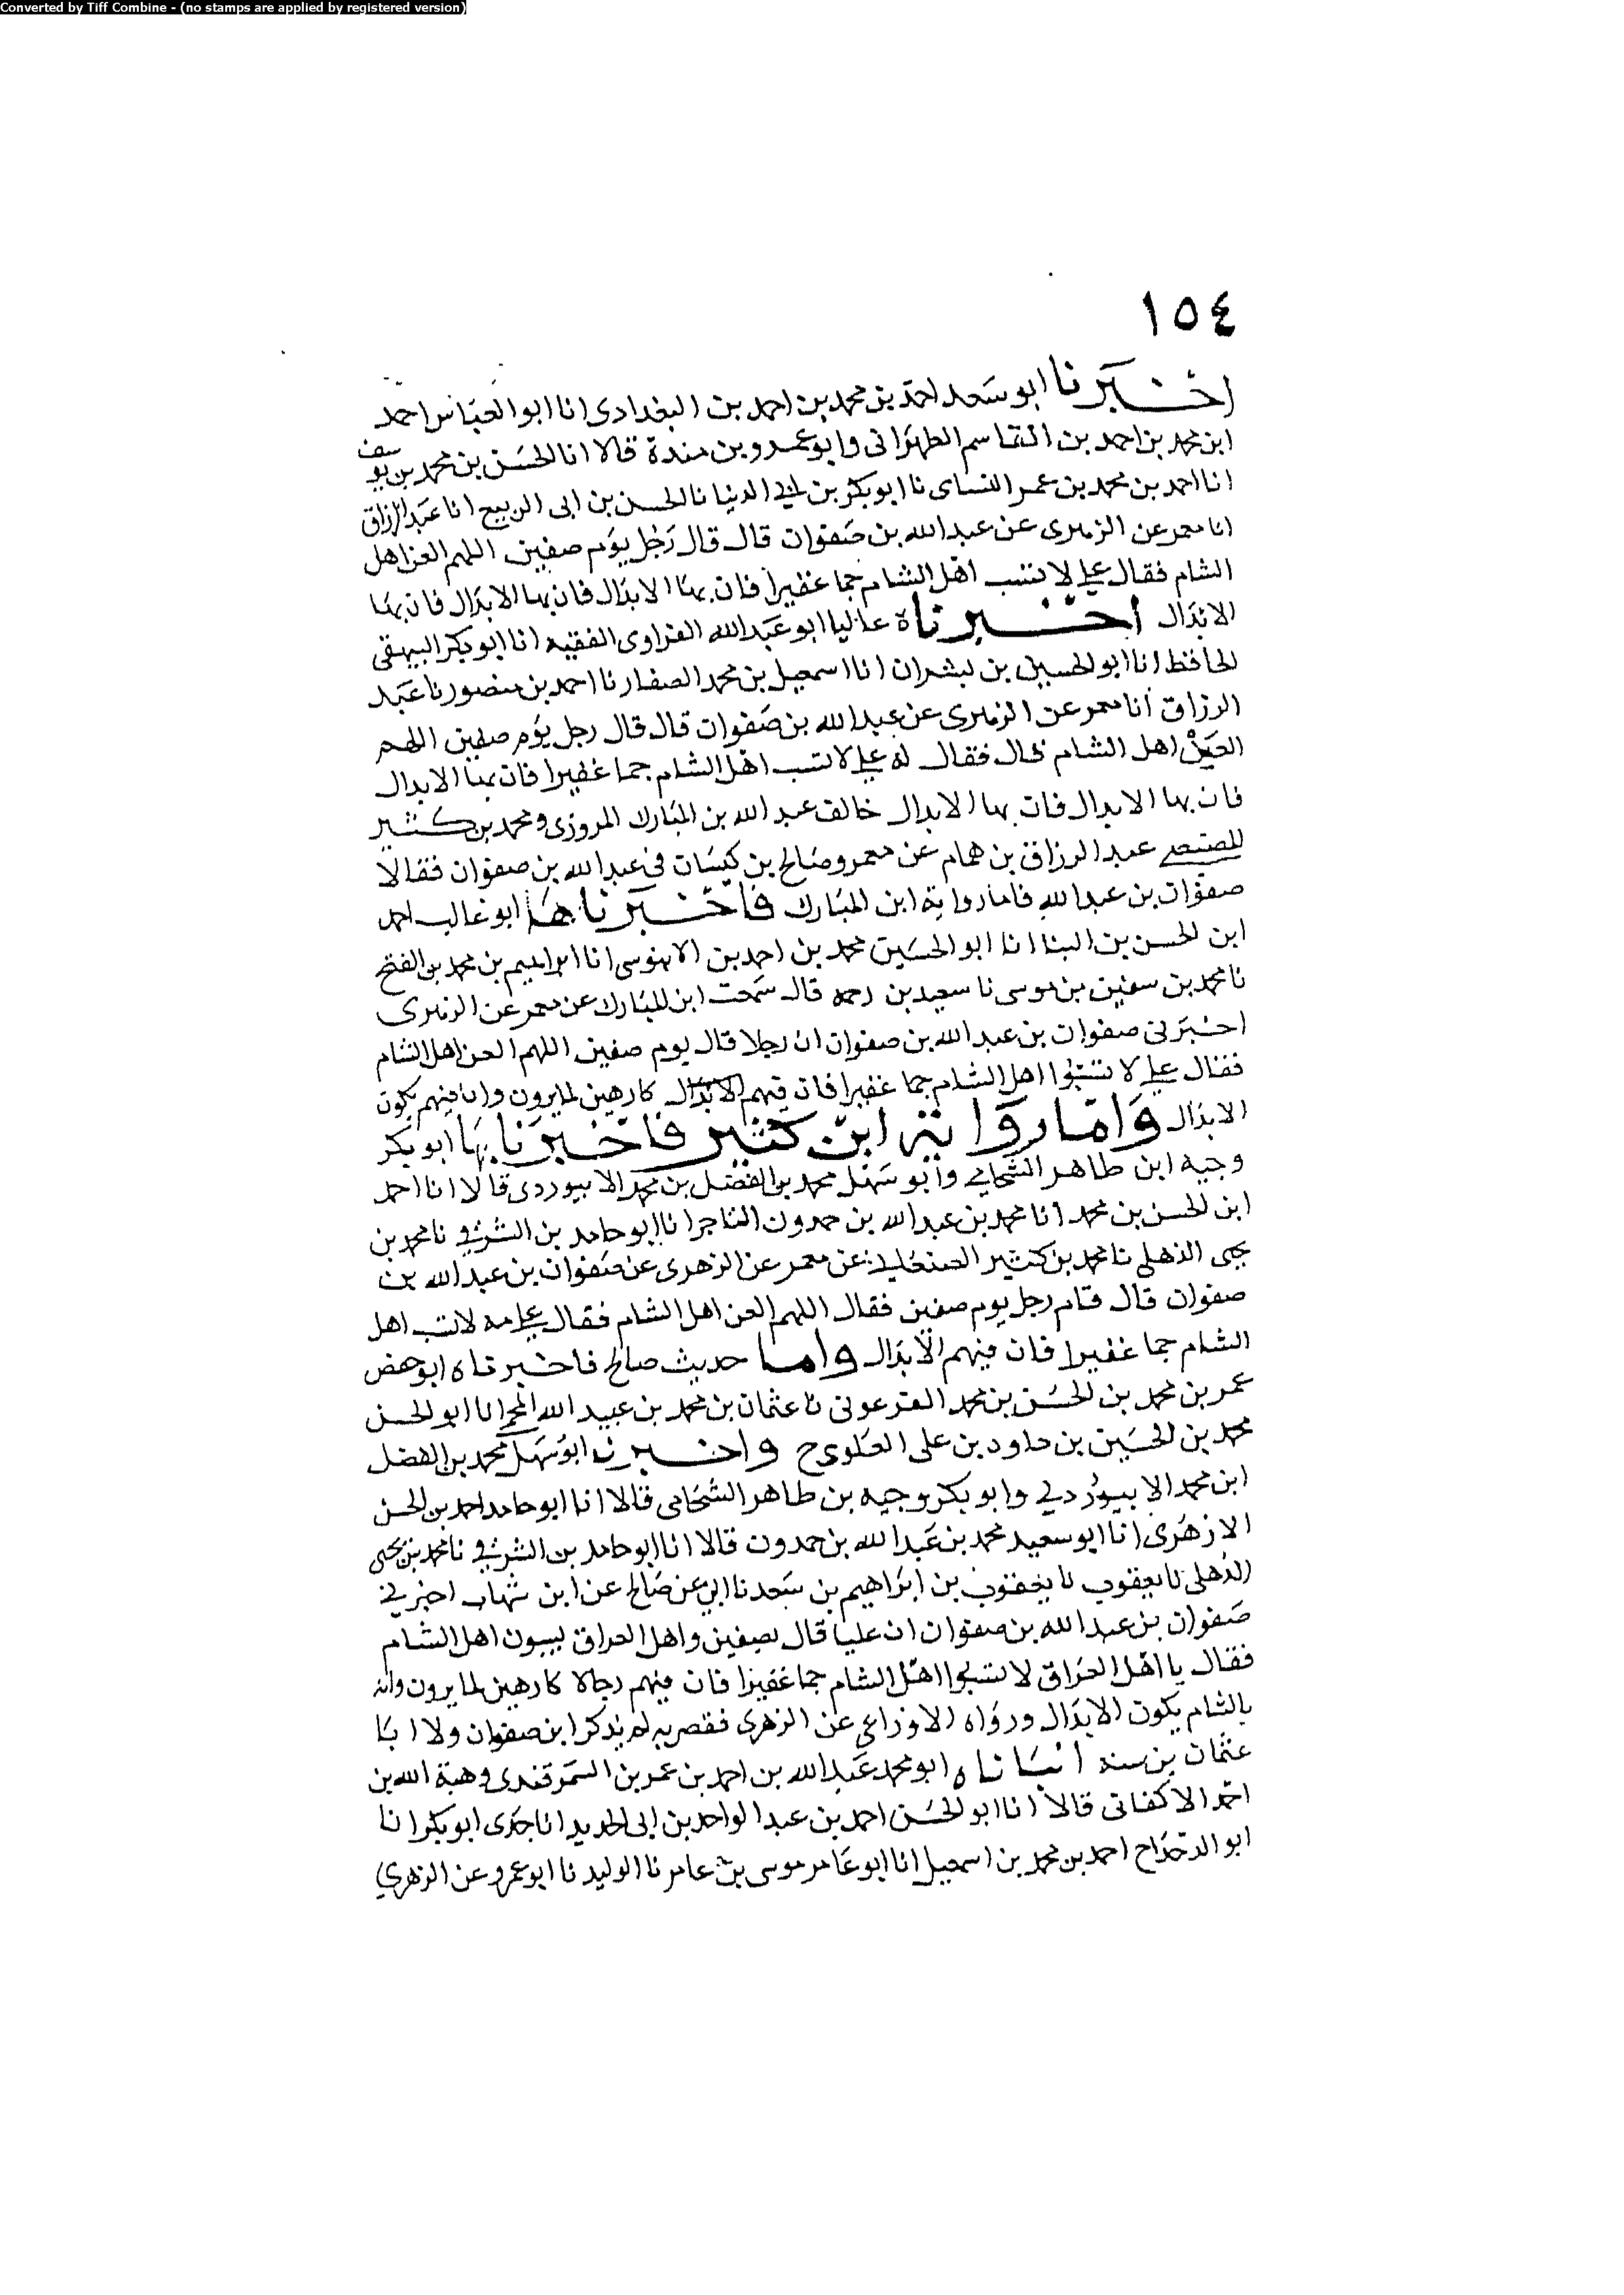 Converted by Tiff Combine - (no stamps are applied by registered version)
١٥٤
اخبرنا ابو سعد احمد بن محمد بن احمد بن البغدادى انا ابو العباس احمد
ابن محمد بن احمد بن القاسم الطهرانى وابو عمرو بن مندة قالا انا الحسن بن محمد بن يوسف
انا احمد بن محمد بن عمر النساى نا ابو بكر بن ابي الدنيا نا الحسن بن ابى الربيع انا عبد الرزاق
انا معمر عن الزهرى عن عبد الله بن صفوان قال قال رجل يوم صفين اللهم العن اهل
الشام فقال علي لا تسب اهل الشام جما غفيرا فان بها الابدال فان بها الابدال فان بها
الابدال اخبرناه عاليا ابو عبد الله الفراوى الفقيه انا ابو بكر البيهقى
الحافظ انا ابو الحسين بن بشران انا اسمعيل بن محمد الصفار نا احمد بن منصور نا عبد
الرزاق انا معمر عن الزهرى عن عبد الله بن صفوان قال قال رجل يوم صفين اللهم
العن اهل الشام قال فقال له علي لا تسب اهل الشام جما غفيرا فان بها الابدال
فان بها الابدال فان بها الابدال خالف عبد الله بن المبارك المروزى ومحمد بن كثير
عبد الرزاق بن همام عن معمر وصالح بن كيسان فى عبد الله بن صفوان فقالا
صفوان بن عبد الله فاما رواية ابن المبارك فاخبرنا بها ابو غالب احمد
ابن الحسن بن البنا انا ابو الحسين محمد بن احمد بن الابنوسى انا ابراهيم بن محمد بن الفتح
نا محمد بن سفين بن موسى نا سعيد بن رحمه قال سمعت ابن المبارك عن معمر عن الزهرى
اخبرنى صفوان بن عبد الله بن صفوان ان رجلا قال يوم صفين اللهم العن اهل الشام
فقال علي لا تسبوا اهل الشام جما غفيرا فان فيهم الابدال كارهين لما يرون وان فيهم يكون
الابدال واما رواية ابن كثير فاخبرنا بها ابو بكر
وجيه ابن طاهر الشحامي وابو سهل محمد بن الفضل بن محمد الابيوردى قالا انا احمد
ابن الحسن بن محمد انا محمد بن عبد الله بن حمدون التاجر انا ابو حامد بن الشرقي نا محمد بن
يحيى الذهلى نا محمد بن كثير الصنعاني عن معمر عن الزهرى عن صفوان بن عبد الله بن
صفوان قال قام رجل يوم صفين فقال اللهم العن اهل الشام فقال علي مه لا تسب اهل
الشام جما غفيرا فان فيهم الابدال واما حديث صالح فاخبرناه ابو حفص
عمر بن محمد بن الحسن بن محمد الفرغولى نا عثمان بن محمد بن عبيد الله المحمى انا ابو الحسن
محمد بن الحسين بن داود بن على العلوى ح واخبرنا ابو سهل محمد بن الفضل
ابن محمد الابيوردي وابو بكر وجيه بن طاهر الشحامى قالا انا ابو حامد احمد بن الحسن
الازهرى انا ابو سعيد محمد بن عبد الله بن حمدون قالا انا ابو حامد بن الشرقي نا محمد بن يحيى
الذهلى نا يعقوب نا يعقوب بن ابراهيم بن سعد نا ابي عن صالح عن ابن شهاب اخبرني
صفوان بن عبد الله بن صفوان ان عليا قال بصفين واهل العراق يسبون اهل الشام
فقال يا اهل العراق لا تسبوا اهل الشام جما غفيرا فان فيهم رجالا كارهين لما يرون وانه
بالشام يكون الابدال ورواه الاوزاعي عن الزهرى فقصر به لم يذكر ابن صفوان ولا ابا
عثمان بن سنه انبأناه ابو محمد عبد الله بن احمد بن عمر بن السمرقندى وهبة الله بن
احمد الاكفانى قالا انا ابو الحسن احمد بن عبد الواحد بن ابى الحديد انا جدى ابو بكر انا
ابو الدحداح احمد بن محمد بن اسمعيل انا ابو عامر موسى بن عامر نا الوليد نا ابو عمرو عن الزهري